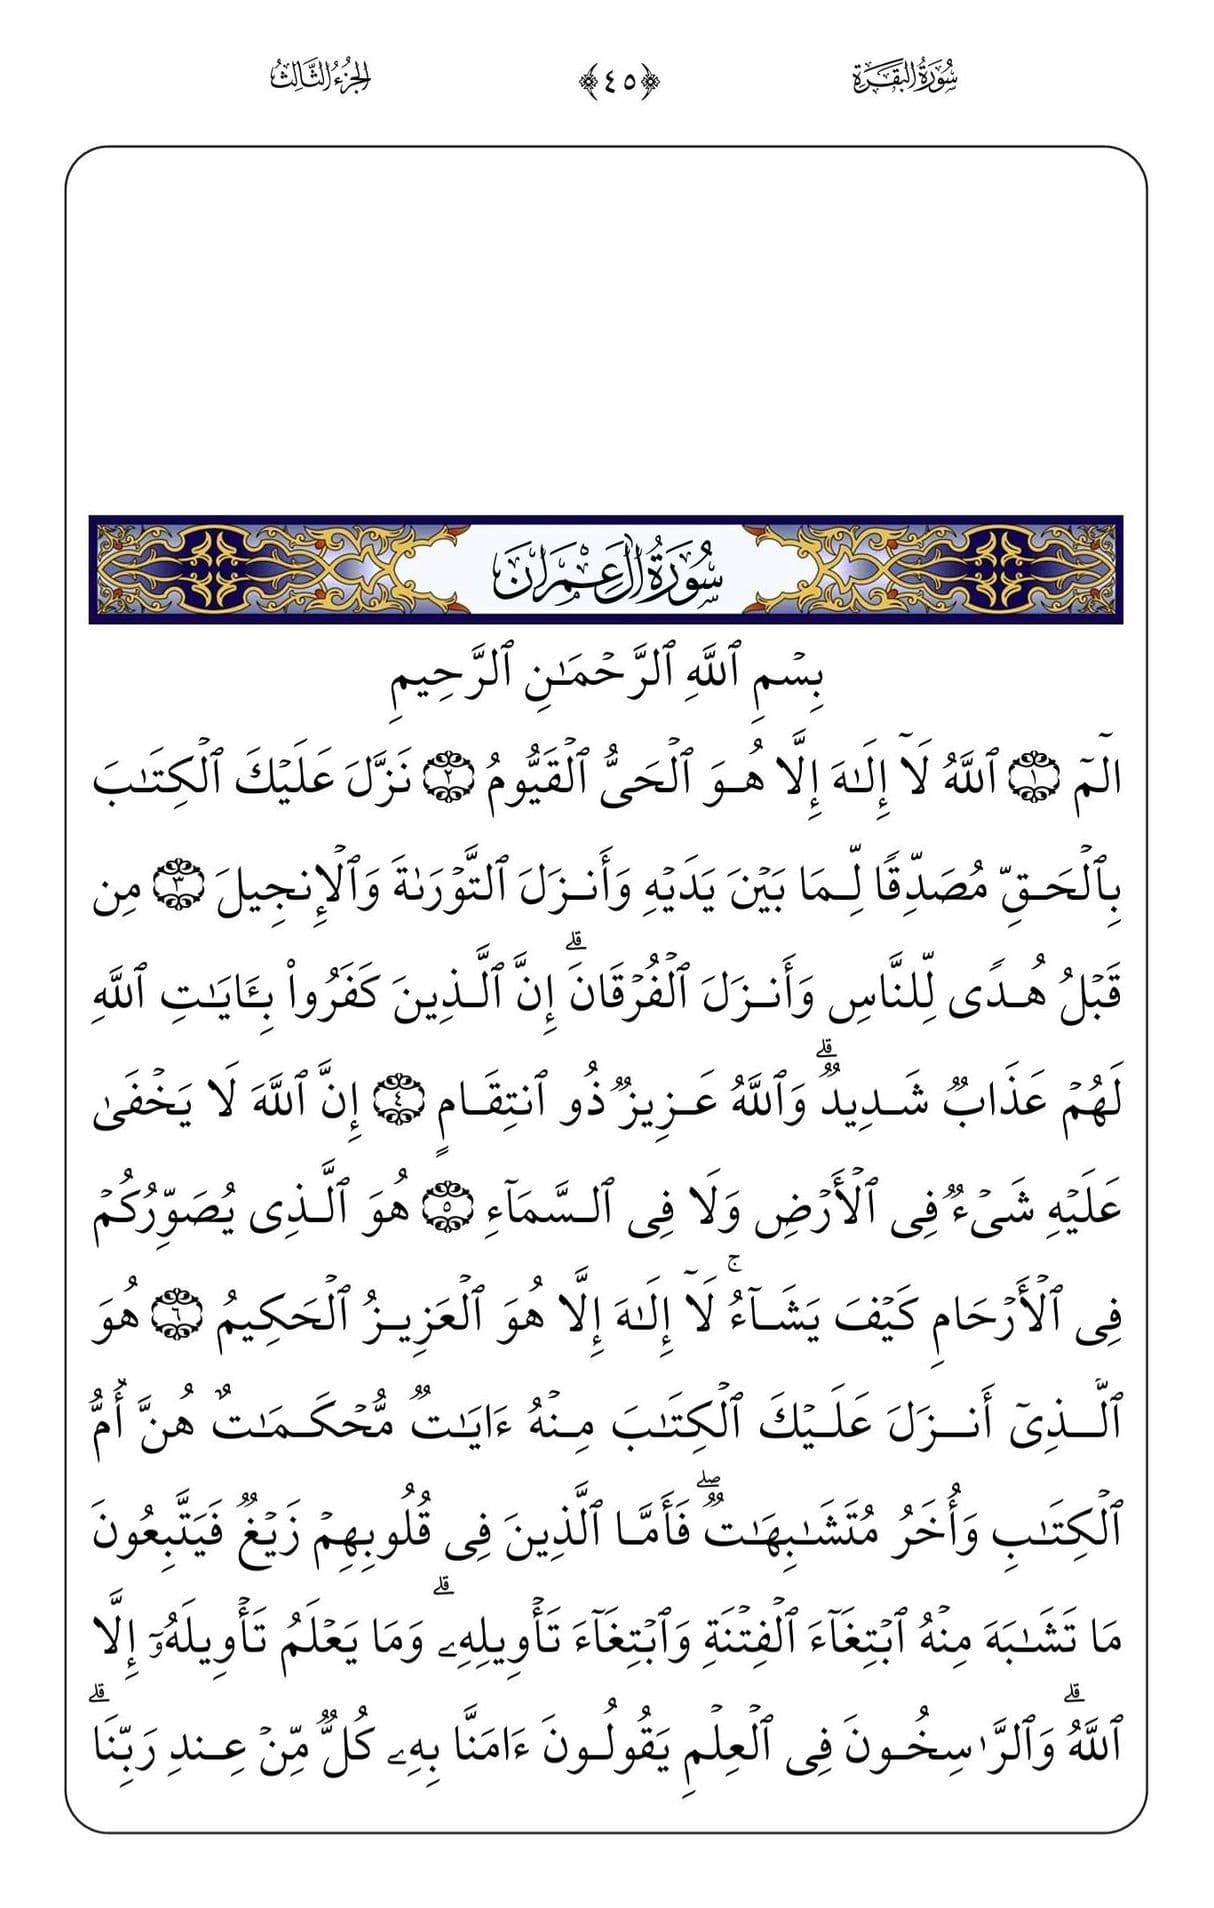 سُورَةُ البَقَرَةِ ﴿٤٥﴾ الجُزْءُ الثَّالِثُ
سُورَةُ آلِ عِمْرَانَ
بِسْمِ ٱللَّهِ ٱلرَّحْمَـٰنِ ٱلرَّحِيمِ
الٓمٓ ١ ٱللَّهُ لَآ إِلَـٰهَ إِلَّا هُوَ ٱلْحَىُّ ٱلْقَيُّومُ ٢ نَزَّلَ عَلَيْكَ ٱلْكِتَـٰبَ
بِٱلْحَقِّ مُصَدِّقًا لِّمَا بَيْنَ يَدَيْهِ وَأَنزَلَ ٱلتَّوْرَىٰةَ وَٱلْإِنجِيلَ ٣ مِن
قَبْلُ هُدًى لِّلنَّاسِ وَأَنزَلَ ٱلْفُرْقَانَ ۗ إِنَّ ٱلَّذِينَ كَفَرُوا۟ بِـَٔايَـٰتِ ٱللَّهِ
لَهُمْ عَذَابٌ شَدِيدٌ ۗ وَٱللَّهُ عَزِيزٌ ذُو ٱنتِقَامٍ ٤ إِنَّ ٱللَّهَ لَا يَخْفَىٰ
عَلَيْهِ شَىْءٌ فِى ٱلْأَرْضِ وَلَا فِى ٱلسَّمَآءِ ٥ هُوَ ٱلَّذِى يُصَوِّرُكُمْ
فِى ٱلْأَرْحَامِ كَيْفَ يَشَآءُ ۚ لَآ إِلَـٰهَ إِلَّا هُوَ ٱلْعَزِيزُ ٱلْحَكِيمُ ٦ هُوَ
ٱلَّذِىٓ أَنزَلَ عَلَيْكَ ٱلْكِتَـٰبَ مِنْهُ ءَايَـٰتٌ مُّحْكَمَـٰتٌ هُنَّ أُمُّ
ٱلْكِتَـٰبِ وَأُخَرُ مُتَشَـٰبِهَـٰتٌ ۖ فَأَمَّا ٱلَّذِينَ فِى قُلُوبِهِمْ زَيْغٌ فَيَتَّبِعُونَ
مَا تَشَـٰبَهَ مِنْهُ ٱبْتِغَآءَ ٱلْفِتْنَةِ وَٱبْتِغَآءَ تَأْوِيلِهِۦ ۗ وَمَا يَعْلَمُ تَأْوِيلَهُۥٓ إِلَّا
ٱللَّهُ ۗ وَٱلرَّٰسِخُونَ فِى ٱلْعِلْمِ يَقُولُونَ ءَامَنَّا بِهِۦ كُلٌّ مِّنْ عِندِ رَبِّنَا ۗ